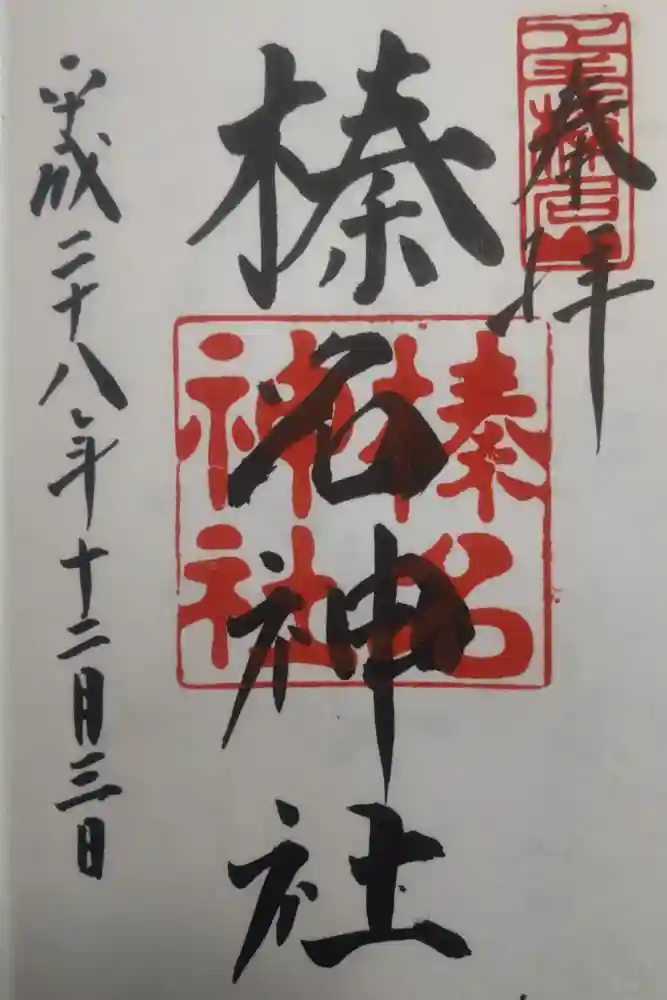 奉拝
上毛榛名山
榛名神社
榛名
神社
平成二十八年十二月三日